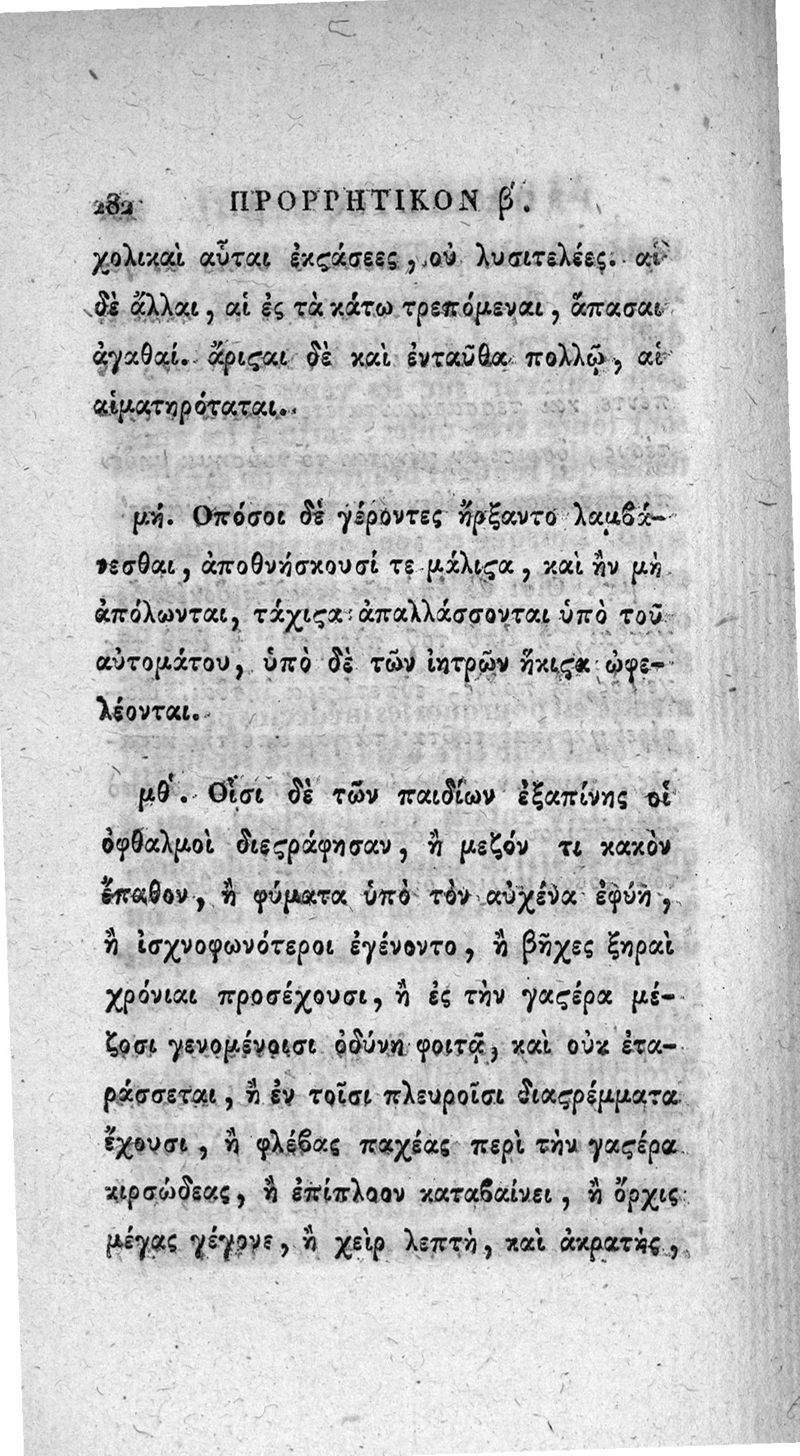 282 ΠΡΟΡΡΗΤΙΚΟΝ β΄.
χολικαὶ αὗται ἐκϛάσεες, οὐ λυσιτελέες. αἱ
δὲ ἄλλαι, αἱ ἐς τὰ κάτω τρεπόμεναι, ἅπασαι
ἀγαθαί. ἄριϛαι δὲ καὶ ἐνταῦθα πολλῷ, αἱ
αἱματηρόταται.
μή. Οπόσοι δὲ γέροντες ἤρξαντο λαμβά-
νεσθαι, ἀποθνήσκουσί τε μάλιϛα, καὶ ἢν μὴ
ἀπόλωνται, τάχιϛα ἀπαλλάσσονται ὑπὸ τοῦ
αὐτομάτου, ὑπὸ δὲ τῶν ἰητρῶν ἥκιϛα ὠφε-
λέονται.
μθ΄. Οἷσι δὲ τῶν παιδίων ἐξαπίνης οἱ
ὀφθαλμοὶ διεϛράφησαν, ἢ μεζόν τι κακὸν
ἔπαθον, ἢ φύματα ὑπὸ τὸν αὐχένα ἐφύη,
ἢ ἰσχνοφωνότεροι ἐγένοντο, ἢ βῆχες ξηραὶ
χρόνιαι προσέχουσι, ἢ ἐς τὴν γαϛέρα μέ-
ζοσι γενομένοισι ὀδύνη φοιτᾷ, καὶ οὐκ ἐτα-
ράσσεται, ἢ ἐν τοῖσι πλευροῖσι διαϛρέμματα
ἔχουσι, ἢ φλέβας παχέας περὶ τὴν γαϛέρα
κιρσώδεας, ἢ ἐπίπλοον καταβαίνει, ἢ ὄρχις
μέγας γέγονε, ἢ χεὶρ λεπτὴ, καὶ ἀκρατὴς,